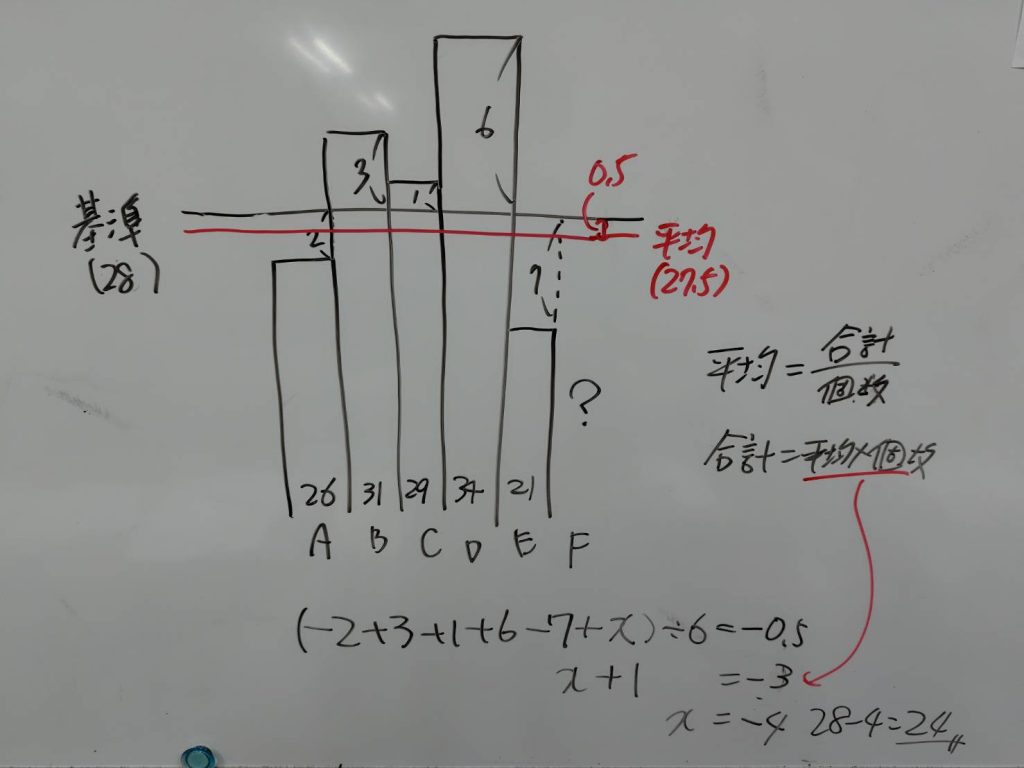 6
3
1
0.5
基準
(28)
2
平均
(27.5)
7
?
平均=合計/個数
合計=平均×個数
26 31 29 34 21
A B C D E F
(-2+3+1+6-7+x)÷6=-0.5
x+1 =-3
x =-4 28-4=24